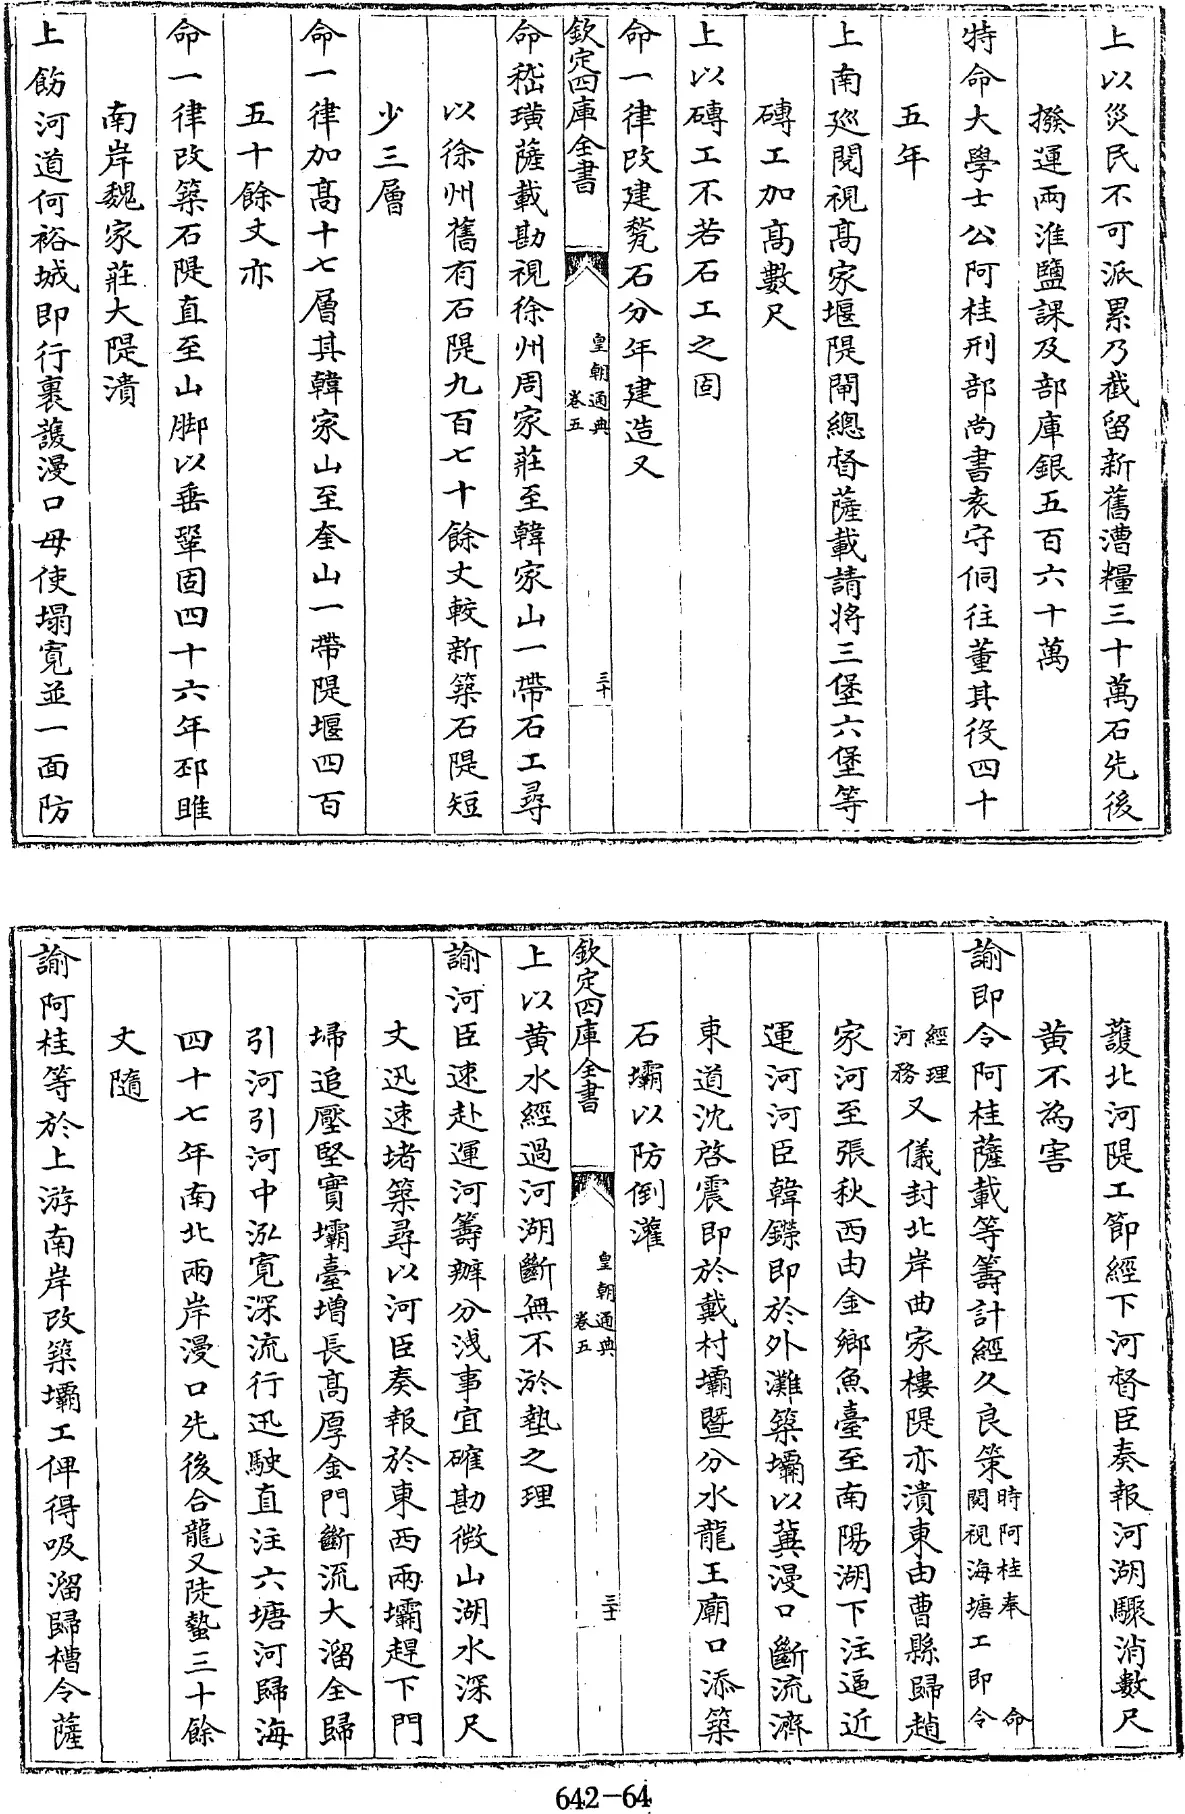 上以災民不可派累乃截留新舊漕糧三十萬石先後
撥運兩淮鹽課及部庫銀五百六十萬
特命大學士公阿桂刑部尚書袁守侗往董其役四十
五年
上南廵閱視髙家堰隄閘總督薩載請將三堡六堡等
磚工加髙數尺
上以磚工不若石工之固
命一律改建甃石分年建造又
欽定四庫全書
皇朝通典
卷五
三十
命嵇璜薩載勘視徐州周家莊至韓家山一帶石工尋
以徐州舊有石隄九百七十餘丈較新築石隄短
少三層
命一律加髙十七層其韓家山至奎山一帶隄堰四百
五十餘丈亦
命一律改築石隄直至山脚以垂鞏固四十六年邳睢
南岸魏家莊大隄潰
上飭河道何裕城即行裹護漫口毋使塌寛並一面防
護北河隄工節經下河督臣奏報河湖驟消數尺
黄不為害
諭即令阿桂薩載等籌計經久良策時阿桂奉命
閱視海塘工即令
經理
河務又儀封北岸曲家樓隄亦潰東由曹縣歸趙
家河至張秋西由金鄉魚臺至南陽湖下注逼近
運河河臣韓鑅即於外灘築壩以冀漫口斷流濟
東道沈啓震即於戴村壩暨分水龍王廟口添築
石壩以防倒灌
欽定四庫全書
皇朝通典
卷五
三十一
上以黄水經過河湖斷無不淤墊之理
諭河臣速赴運河籌辦分洩事宜確勘微山湖水深尺
丈迅速堵築尋以河臣奏報於東西兩壩趕下門
埽追壓堅實壩臺增長髙厚金門斷流大溜全歸
引河引河中泓寛深流行迅駛直注六塘河歸海
四十七年南北兩岸漫口先後合龍又陡蟄三十餘
丈隨
諭阿桂等於上游南岸改築壩工俾得吸溜歸槽令薩
642-64